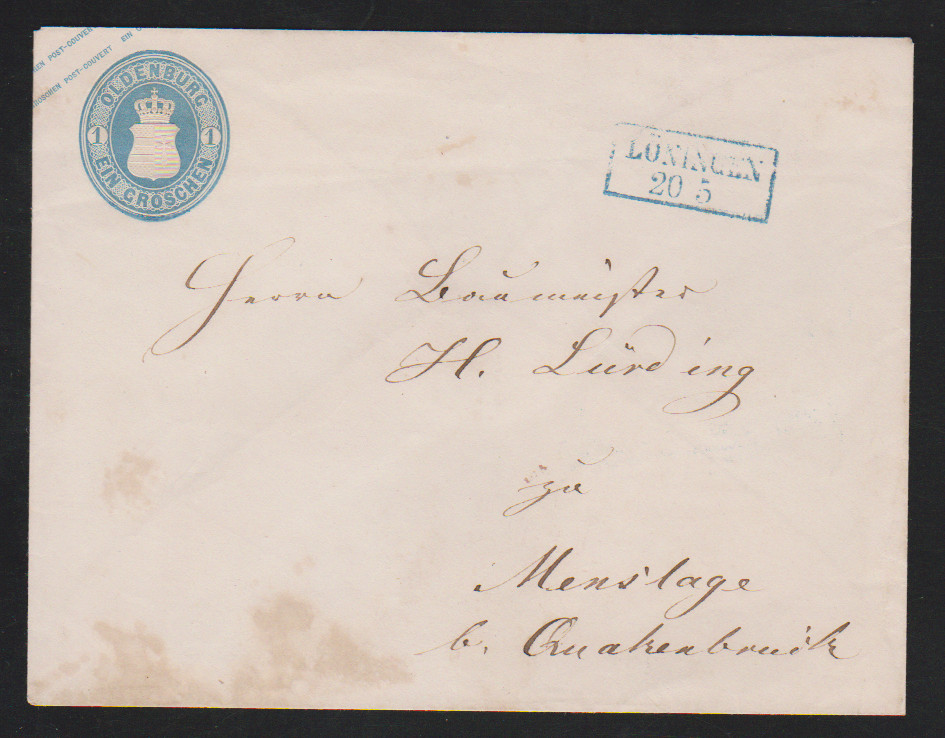 EN POST-COUVERT
GROSCHEN POST-COUVERT EIN
OLDENBURG
1 1
EIN GROSCHEN
LÖNINGEN
20 5
Herrn Baumeister
H. Lürding
zu
Menslage
b. Quakenbrück